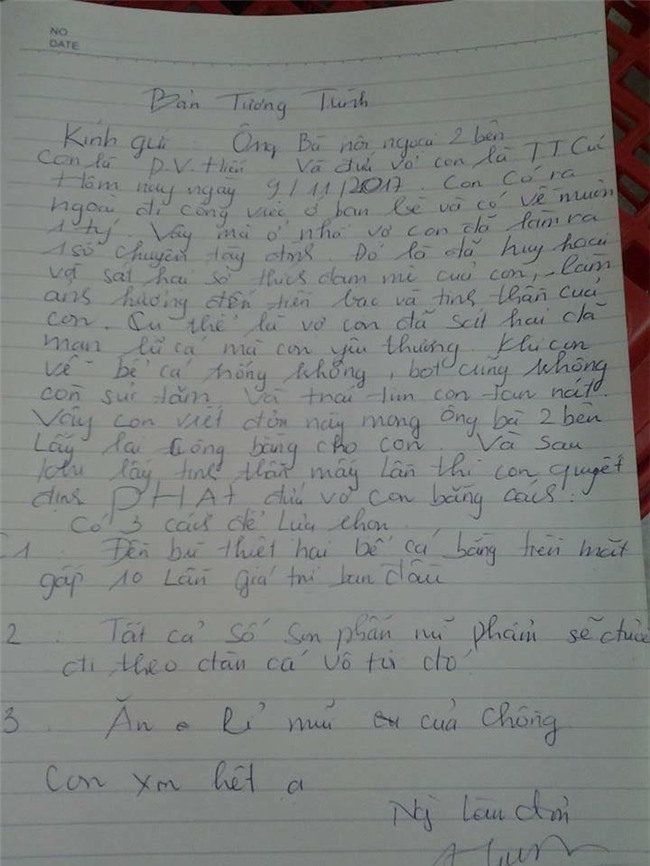 NO
DATE
Bản Tường Trình
Kính gửi Ông Bà nội ngoại 2 bên
Con là D.V.Hiến Và đứa vợ con là TT Cúc
Hôm nay ngày 9/11/2017. Con có ra
ngoài đi công việc ở bạn bè và có về muộn
1 tý. Vậy mà ở nhà vợ con đã làm ra
1 số chuyện tày đình. Đó là đã huy hoại
và sát hại sở thích đam mê của con, làm
ảnh hưởng đến tiền bạc và tinh thần của
con. Cụ thể là vợ con đã sát hại dã
man lũ cá mà con yêu thương. Khi con
về bể cá trống không, bọt cũng không
còn sức tăm. Và trái tim con tan nát.
Vậy con viết đơn này mong Ông bà 2 bên
Lấy lại công bằng cho con. Và sau
khi lấy tinh thần mấy lần thì con quyết
định PHẠt đứa vợ con bằng cách:
Có 3 cách để lựa chọn
1 Đền bù thiệt hại bể cá bằng tiền mặt
gấp 10 Lần giá trị ban đầu
2 : Tất cả số son phấn mĩ phẩm sẽ
đi theo đàn cá vô tội đó
3 Ăn Rỉ mũi của chồng
Con xin hết ạ
Ng làm đơn